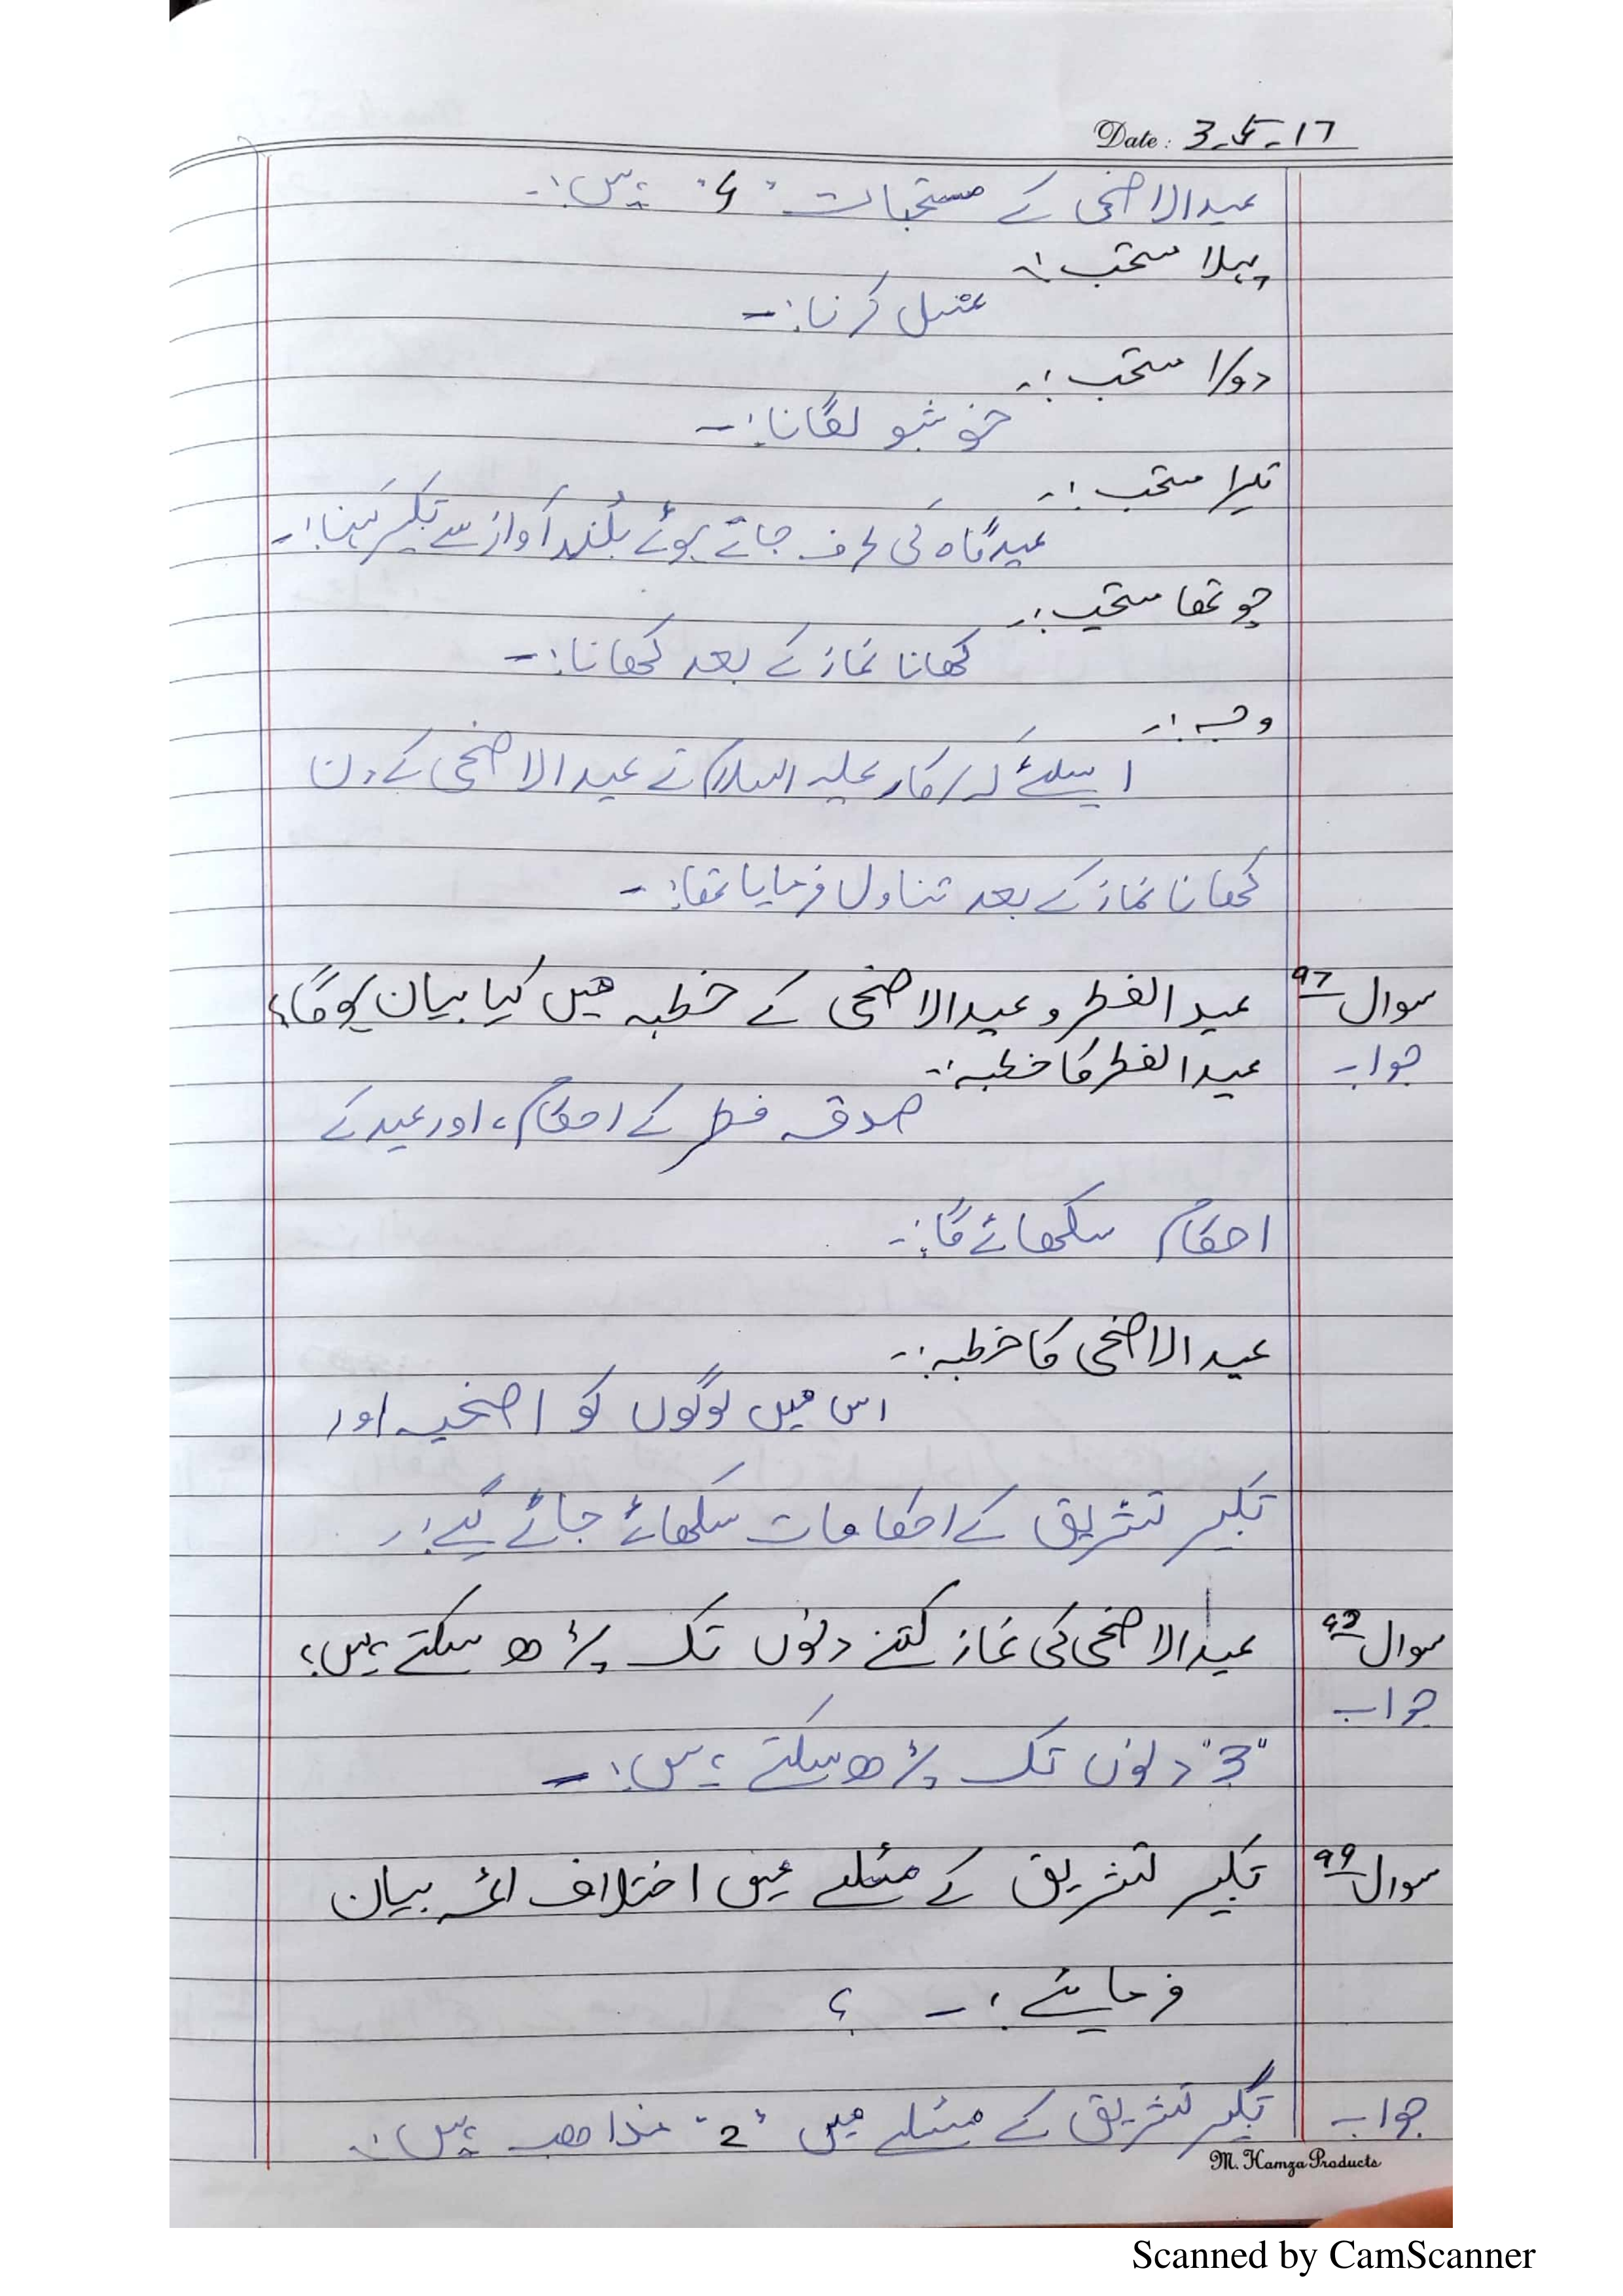 Date: 3-5-17
عید الاضحی کے مستحبات "4" ہیں:-
پہلا مستحب:-
غسل کرنا:-
دوسرا مستحب:-
خوشبو لگانا:-
تیسرا مستحب:-
عیدگاہ کی طرف جاتے ہوئے بلند آواز سے تکبیر کہنا:-
چوتھا مستحب:-
کھانا نماز کے بعد کھانا:-
وجہ:-
اسلئے کہ سرکار علیہ السلام نے عید الاضحی کے دن
کھانا نماز کے بعد تناول فرمایا تھا:-
سوال 97 عید الفطر و عید الاضحی کے خطبہ میں کیا بیان ہوگا؟
جواب عید الفطر کا خطبہ:-
صدقہ فطر کے احکام، اور عید کے
احکام سکھائے گا:-
عید الاضحی کا خطبہ:-
اس میں لوگوں کو اضحیہ اور
تکبیر تشریق کے احکامات سکھائے جائے گے:-
سوال 98 عید الاضحی کی نماز کتنے دنوں تک پڑھ سکتے ہیں؟
جواب
"3" دنوں تک پڑھ سکتے ہیں:-
سوال 99 تکبیر تشریق کے مسئلے میں اختلاف ائمہ بیان
فرمائیے:- ؟
جواب تکبیر تشریق کے مسئلے میں "2" مذاھب ہیں:-
M. Hamza Products
Scanned by CamScanner